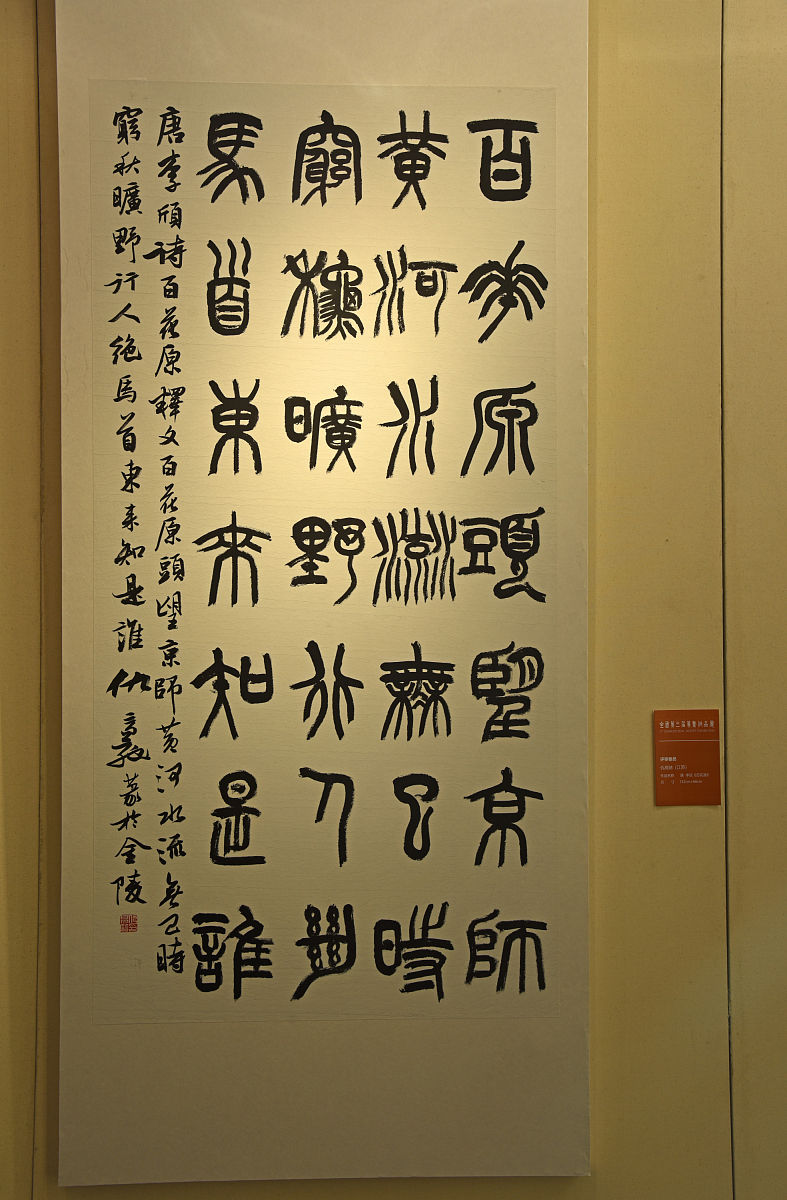 百花原頭望京師
黃河水流無已時
窮秋曠野行人絕
馬首東來知是誰
唐李頎詩百花原釋文百花原頭望京師黃河水流無已時
窮秋曠野行人絕馬首東來知是誰仇高駿篆於金陵